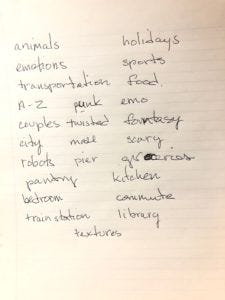 animals holidays
emotions sports
transportation food.
A-Z punk emo
couples twisted fantasy
city male scary
robots pier groceries
pantry kitchen
bedroom commute
train station library
textures